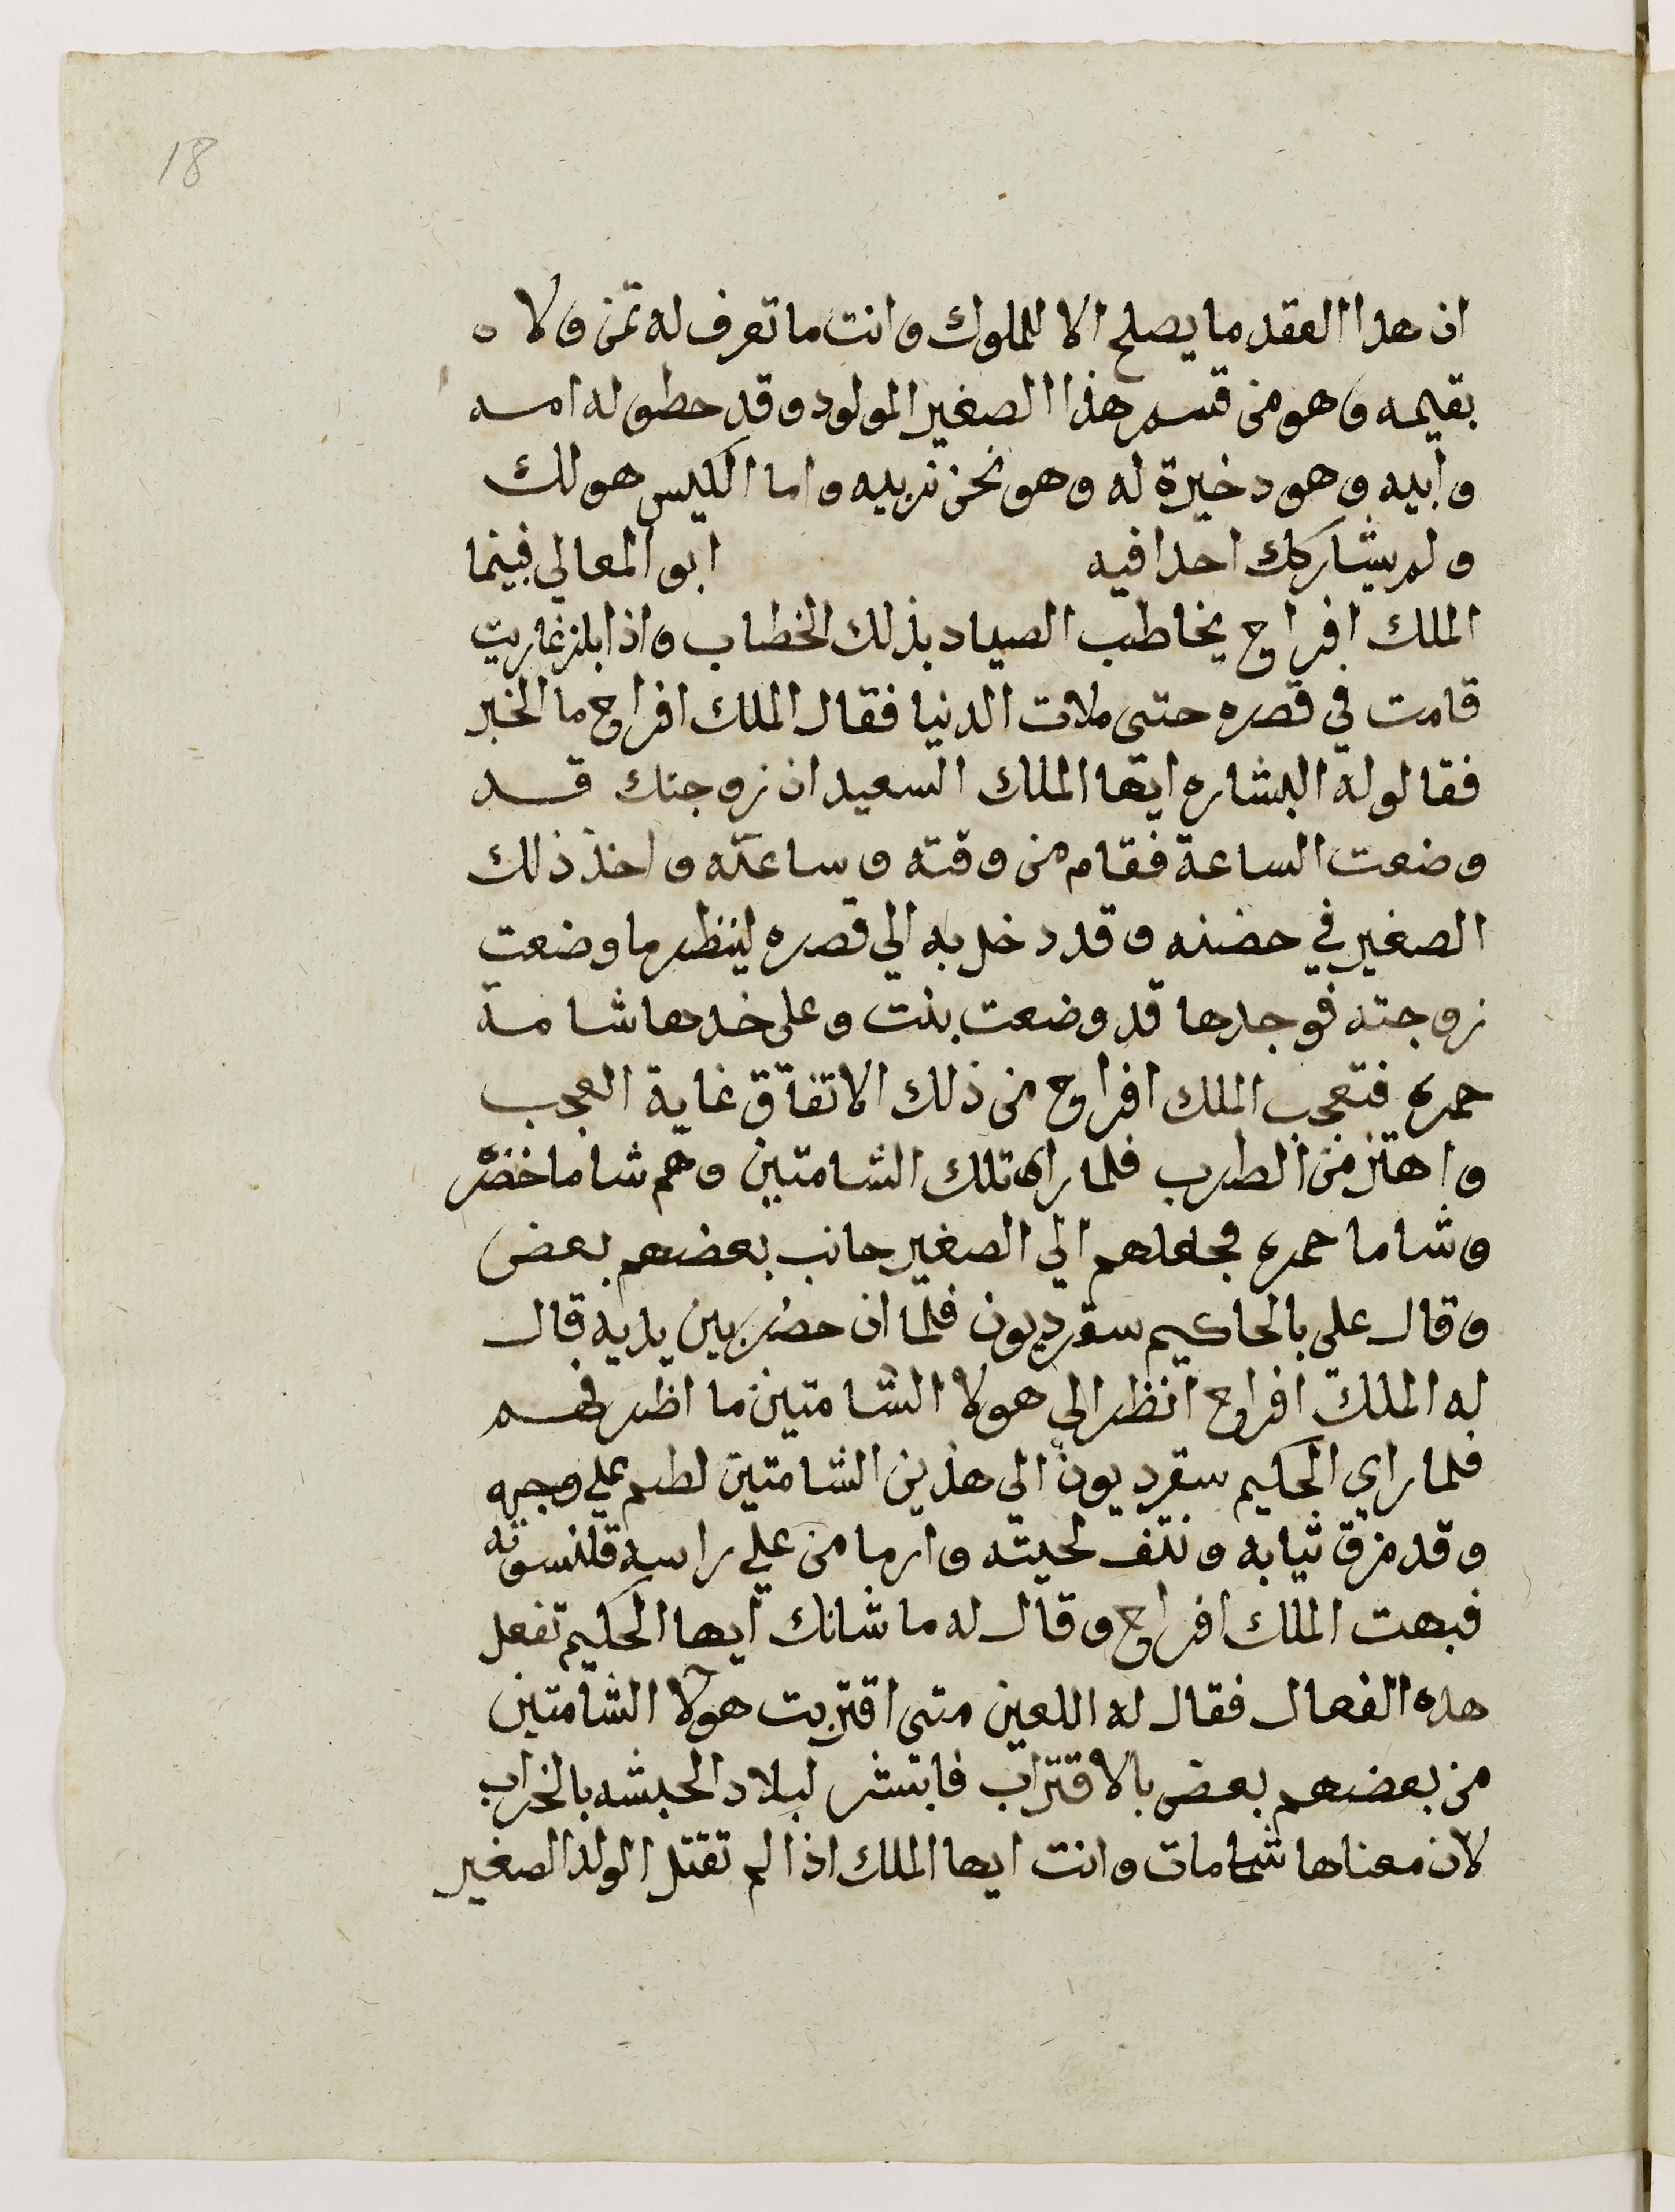 18
ان هدا العقد ما يصلح الا للملوك وانت ما تعرف له ثمن ولا ه
بقيمه وهو من قسم هذا الصغير المولود وقد حطو له امه
وابيه وهو دخيرة له وهو نحن نربيه واما الكيس هو لك
ولم يشاركك احدا فيه ابو المعالي فبينما
الملك افراح يخاطب الصياد بذلك الخطاب واذا بلزغاريت
قامت في قصره حتى ملات الدنيا فقال الملك افراح ما الخبر
فقالو له البشاره ايها الملك السعيد ان زوجتك قد
وضعت الساعة فقام من وقته وساعته واخذ ذلك
الصغير في حضنه وقد دخل به الي قصره لينظر ما وضعت
زوجته فوجدها قد وضعت بنت وعلى خدها شامة
حمره فتعجب الملك افراح من ذلك الاتفاق غاية العجب
واهتز من الطرب فلما راى تلك الشامتين وهم شاما خضر
وشاما حمره فجعلهم الي الصغير جانب بعضهم بعض
وقال على بالحاكيم سقرديون فلما ان حضر بين يديه قال
له الملك افراح انظر الي هولا الشامتين ما اظرفهم
فلما راي الحكيم سقرديون الي هذين الشامتين لطم علي وجهه
وقد مزق ثيابه ونتف لحيته وارما من علي راسه قلنسوته
فبهت الملك افراح وقال له ما شانك ايها الحكيم تفعل
هده الفعال فقال له اللعين متى اقتربت هولا الشامتين
من بعضهم بعض بالاقتراب فابتشر لبلاد الحبشه بالخراب
لان معناها شامات وانت ايها الملك اذا لم تقتل الولد الصغير